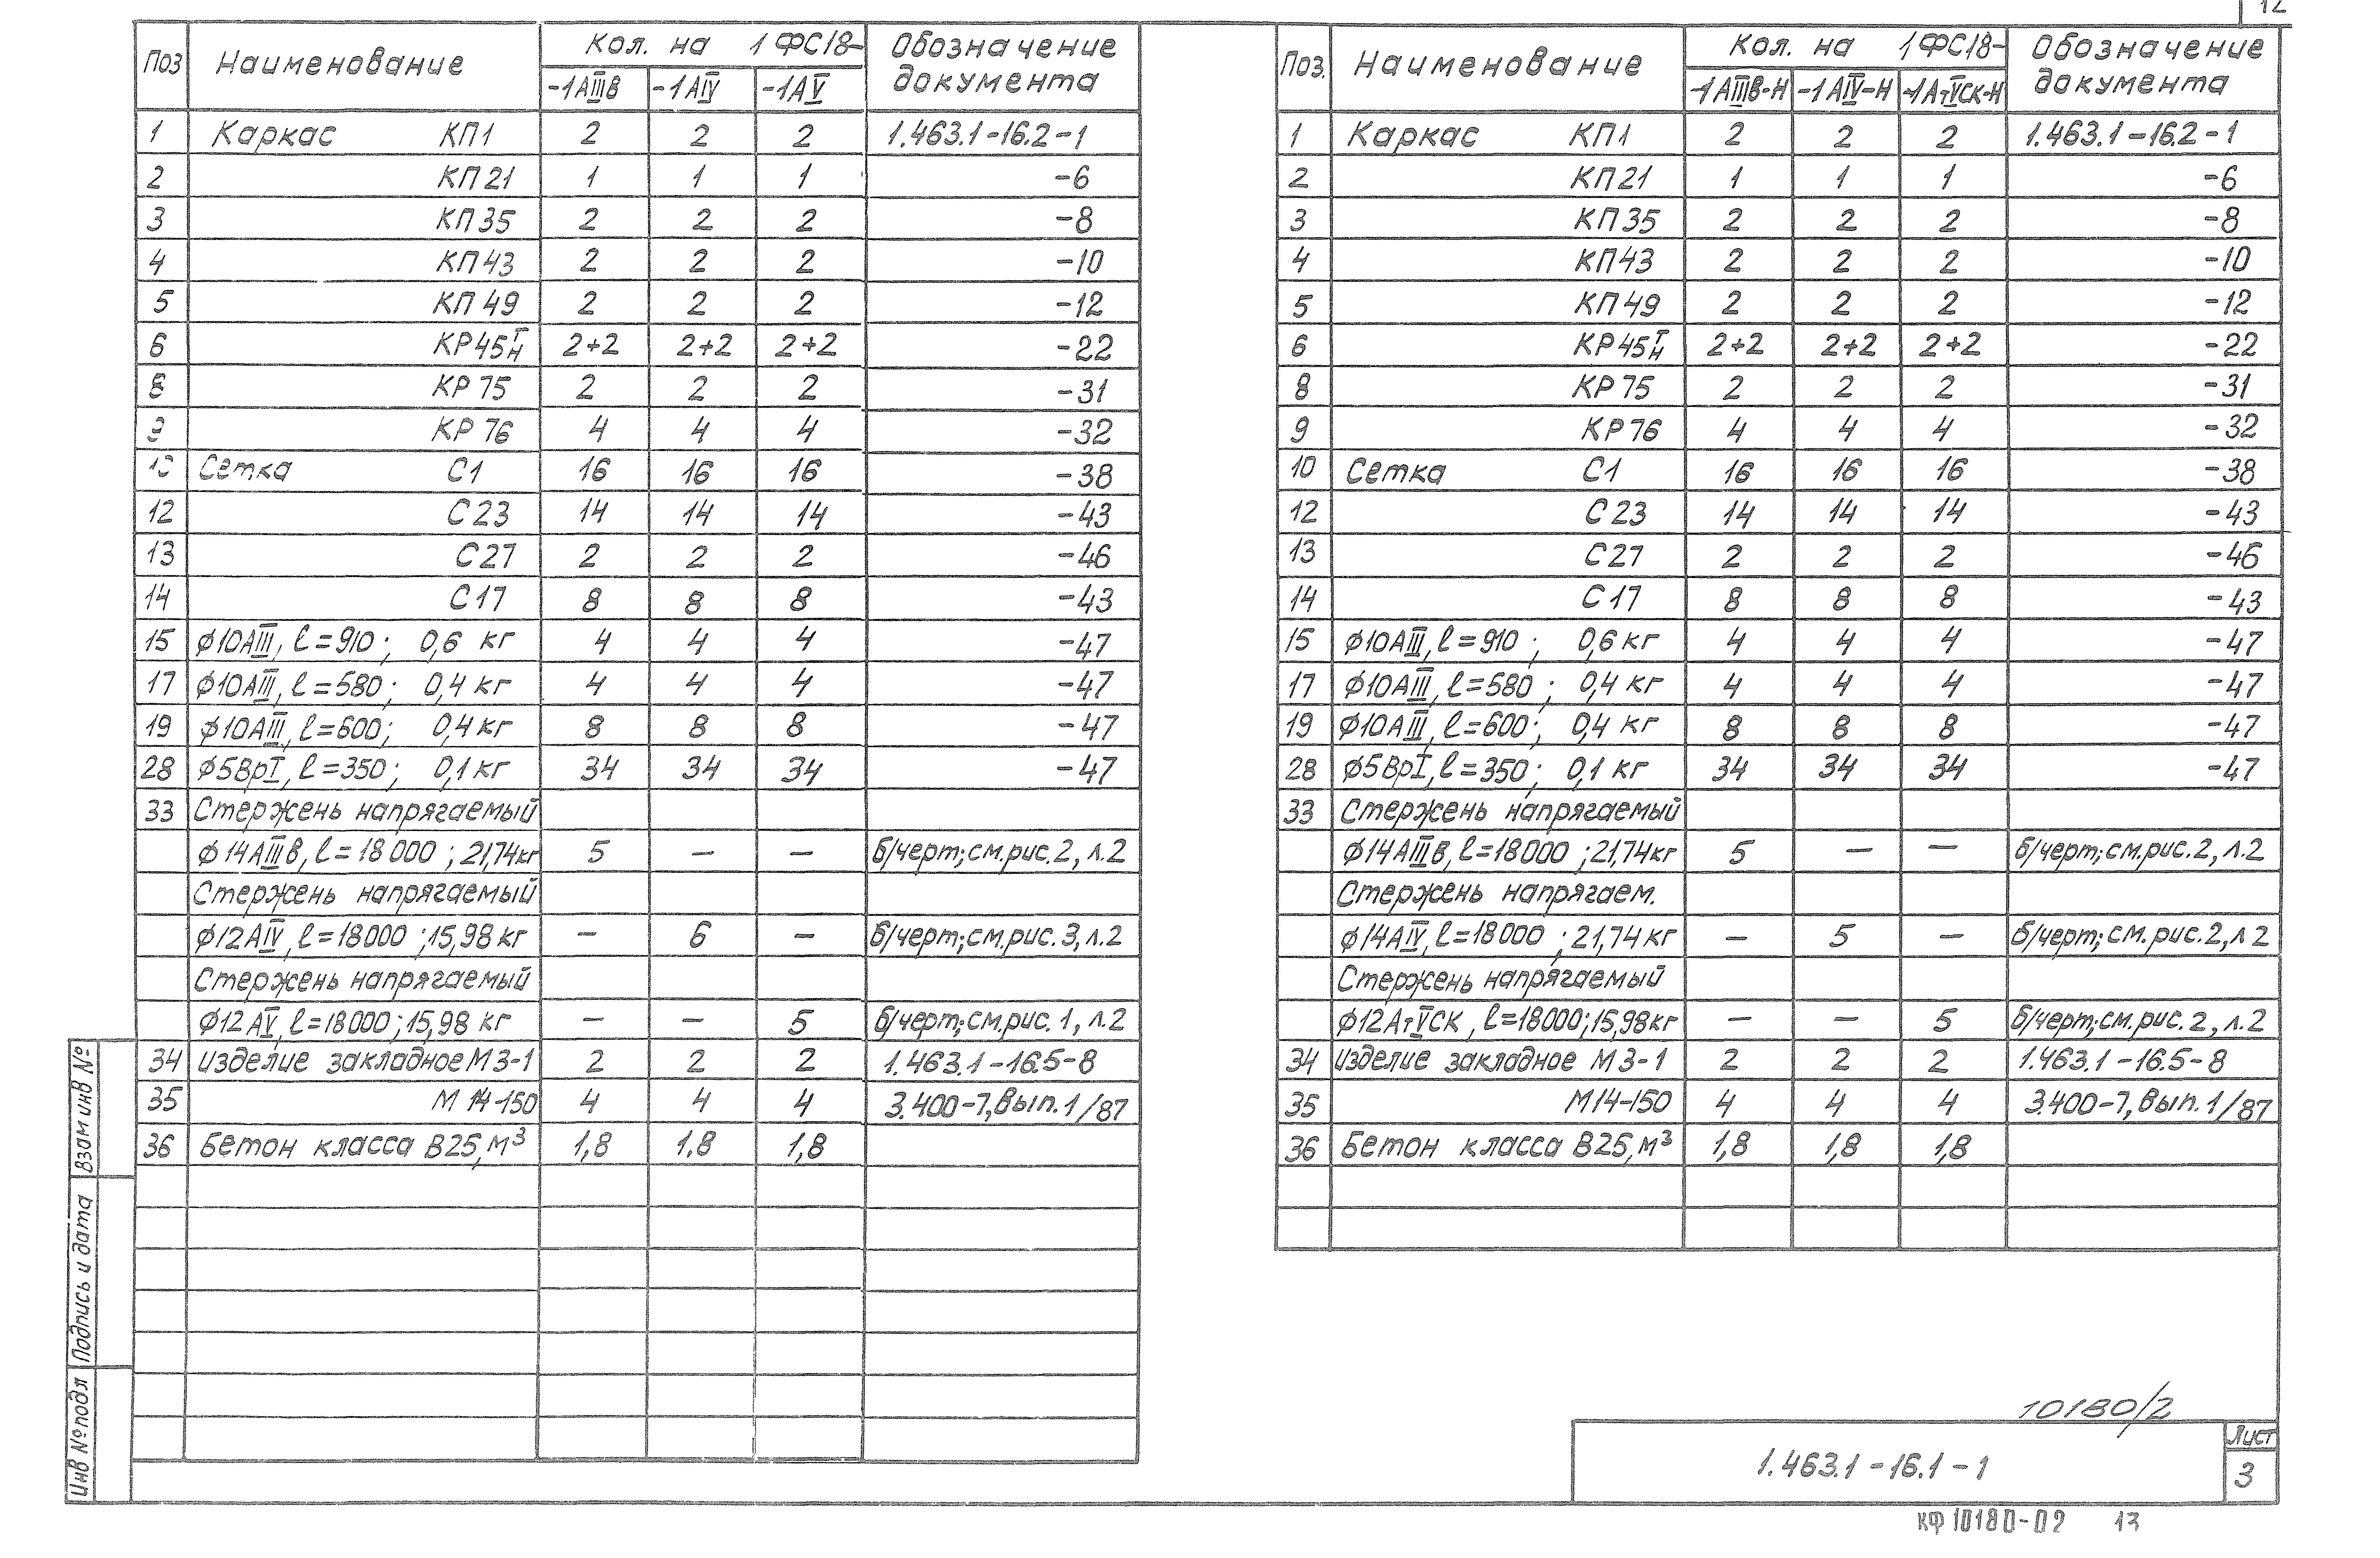 12
Поз Наименование Кол. на 1ФС18- Обозначение документа
-1АIIIв -1АIV -1АV
1 Каркас КП1 2 2 2 1.463.1-16.2-1
2 КП21 1 1 1 -6
3 КП35 2 2 2 -8
4 КП43 2 2 2 -10
5 КП49 2 2 2 -12
6 КР45Т/Н 2+2 2+2 2+2 -22
8 КР75 2 2 2 -31
9 КР76 4 4 4 -32
10 Сетка С1 16 16 16 -38
12 С23 14 14 14 -43
13 С27 2 2 2 -46
14 С17 8 8 8 -43
15 ф10АIII, ℓ=910; 0,6 кг 4 4 4 -47
17 ф10АIII, ℓ=580; 0,4 кг 4 4 4 -47
19 ф10АIII, ℓ=600; 0,4 кг 8 8 8 -47
28 ф5ВрI, ℓ=350; 0,1 кг 34 34 34 -47
33 Стержень напрягаемый
ф14АIIIв, ℓ=18000; 21,74кг 5 — — б/черт; см.рис.2, л.2
Стержень напрягаемый
ф12АIV, ℓ=18000; 15,98кг — 6 — б/черт; см.рис.3, л.2
Стержень напрягаемый
ф12АV, ℓ=18000; 15,98 кг — — 5 б/черт; см.рис.1, л.2
34 Изделие закладное М3-1 2 2 2 1.463.1-16.5-8
35 М14-150 4 4 4 3.400-7, вып.1/87
36 Бетон класса В25, м³ 1,8 1,8 1,8
Поз. Наименование Кол. на 1ФС18- Обозначение документа
-1АIIIв-Н -1АIV-Н -1АтVСК-Н
1 Каркас КП1 2 2 2 1.463.1-16.2-1
2 КП21 1 1 1 -6
3 КП35 2 2 2 -8
4 КП43 2 2 2 -10
5 КП49 2 2 2 -12
6 КР45Т/Н 2+2 2+2 2+2 -22
8 КР75 2 2 2 -31
9 КР76 4 4 4 -32
10 Сетка С1 16 16 16 -38
12 С23 14 14 14 -43
13 С27 2 2 2 -46
14 С17 8 8 8 -43
15 ф10АIII, ℓ=910; 0,6 кг 4 4 4 -47
17 ф10АIII, ℓ=580; 0,4 кг 4 4 4 -47
19 ф10АIII, ℓ=600; 0,4 кг 8 8 8 -47
28 ф5ВрI, ℓ=350; 0,1 кг 34 34 34 -47
33 Стержень напрягаемый
ф14АIIIв, ℓ=18000; 21,74кг 5 — — б/черт; см.рис.2, л.2
Стержень напрягаем.
ф14АIV, ℓ=18000; 21,74кг — 5 — б/черт; см.рис.2, л2
Стержень напрягаемый
ф12АтVСК, ℓ=18000; 15,98кг — — 5 б/черт; см.рис.2, л.2
34 Изделие закладное М3-1 2 2 2 1.463.1-16.5-8
35 М14-150 4 4 4 3.400-7, вып.1/87
36 Бетон класса В25, м³ 1,8 1,8 1,8
Взам инв №
Подпись и дата
Инв № подл
10180/2
1.463.1-16.1-1
Лист
3
КФ10180-02 13